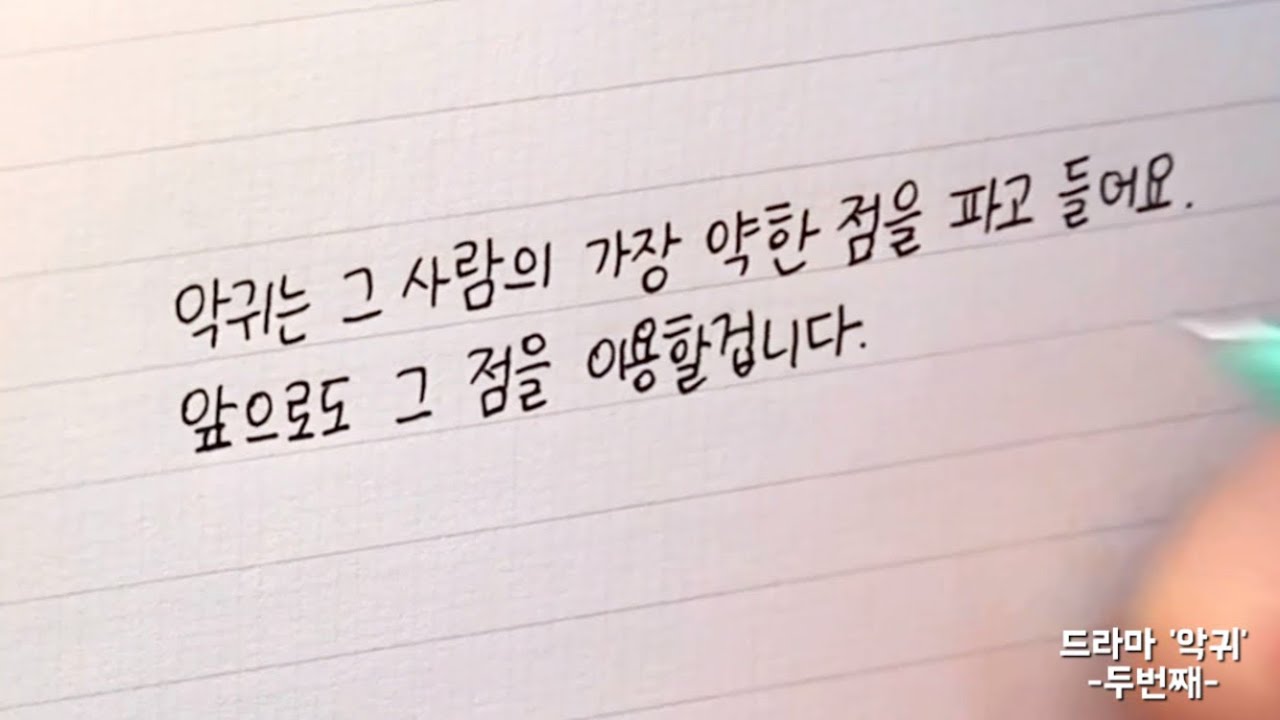 악귀는 그 사람의 가장 약한 점을 파고 들어요.
앞으로도 그 점을 이용할겁니다.
드라마 '악귀'
-두번째-